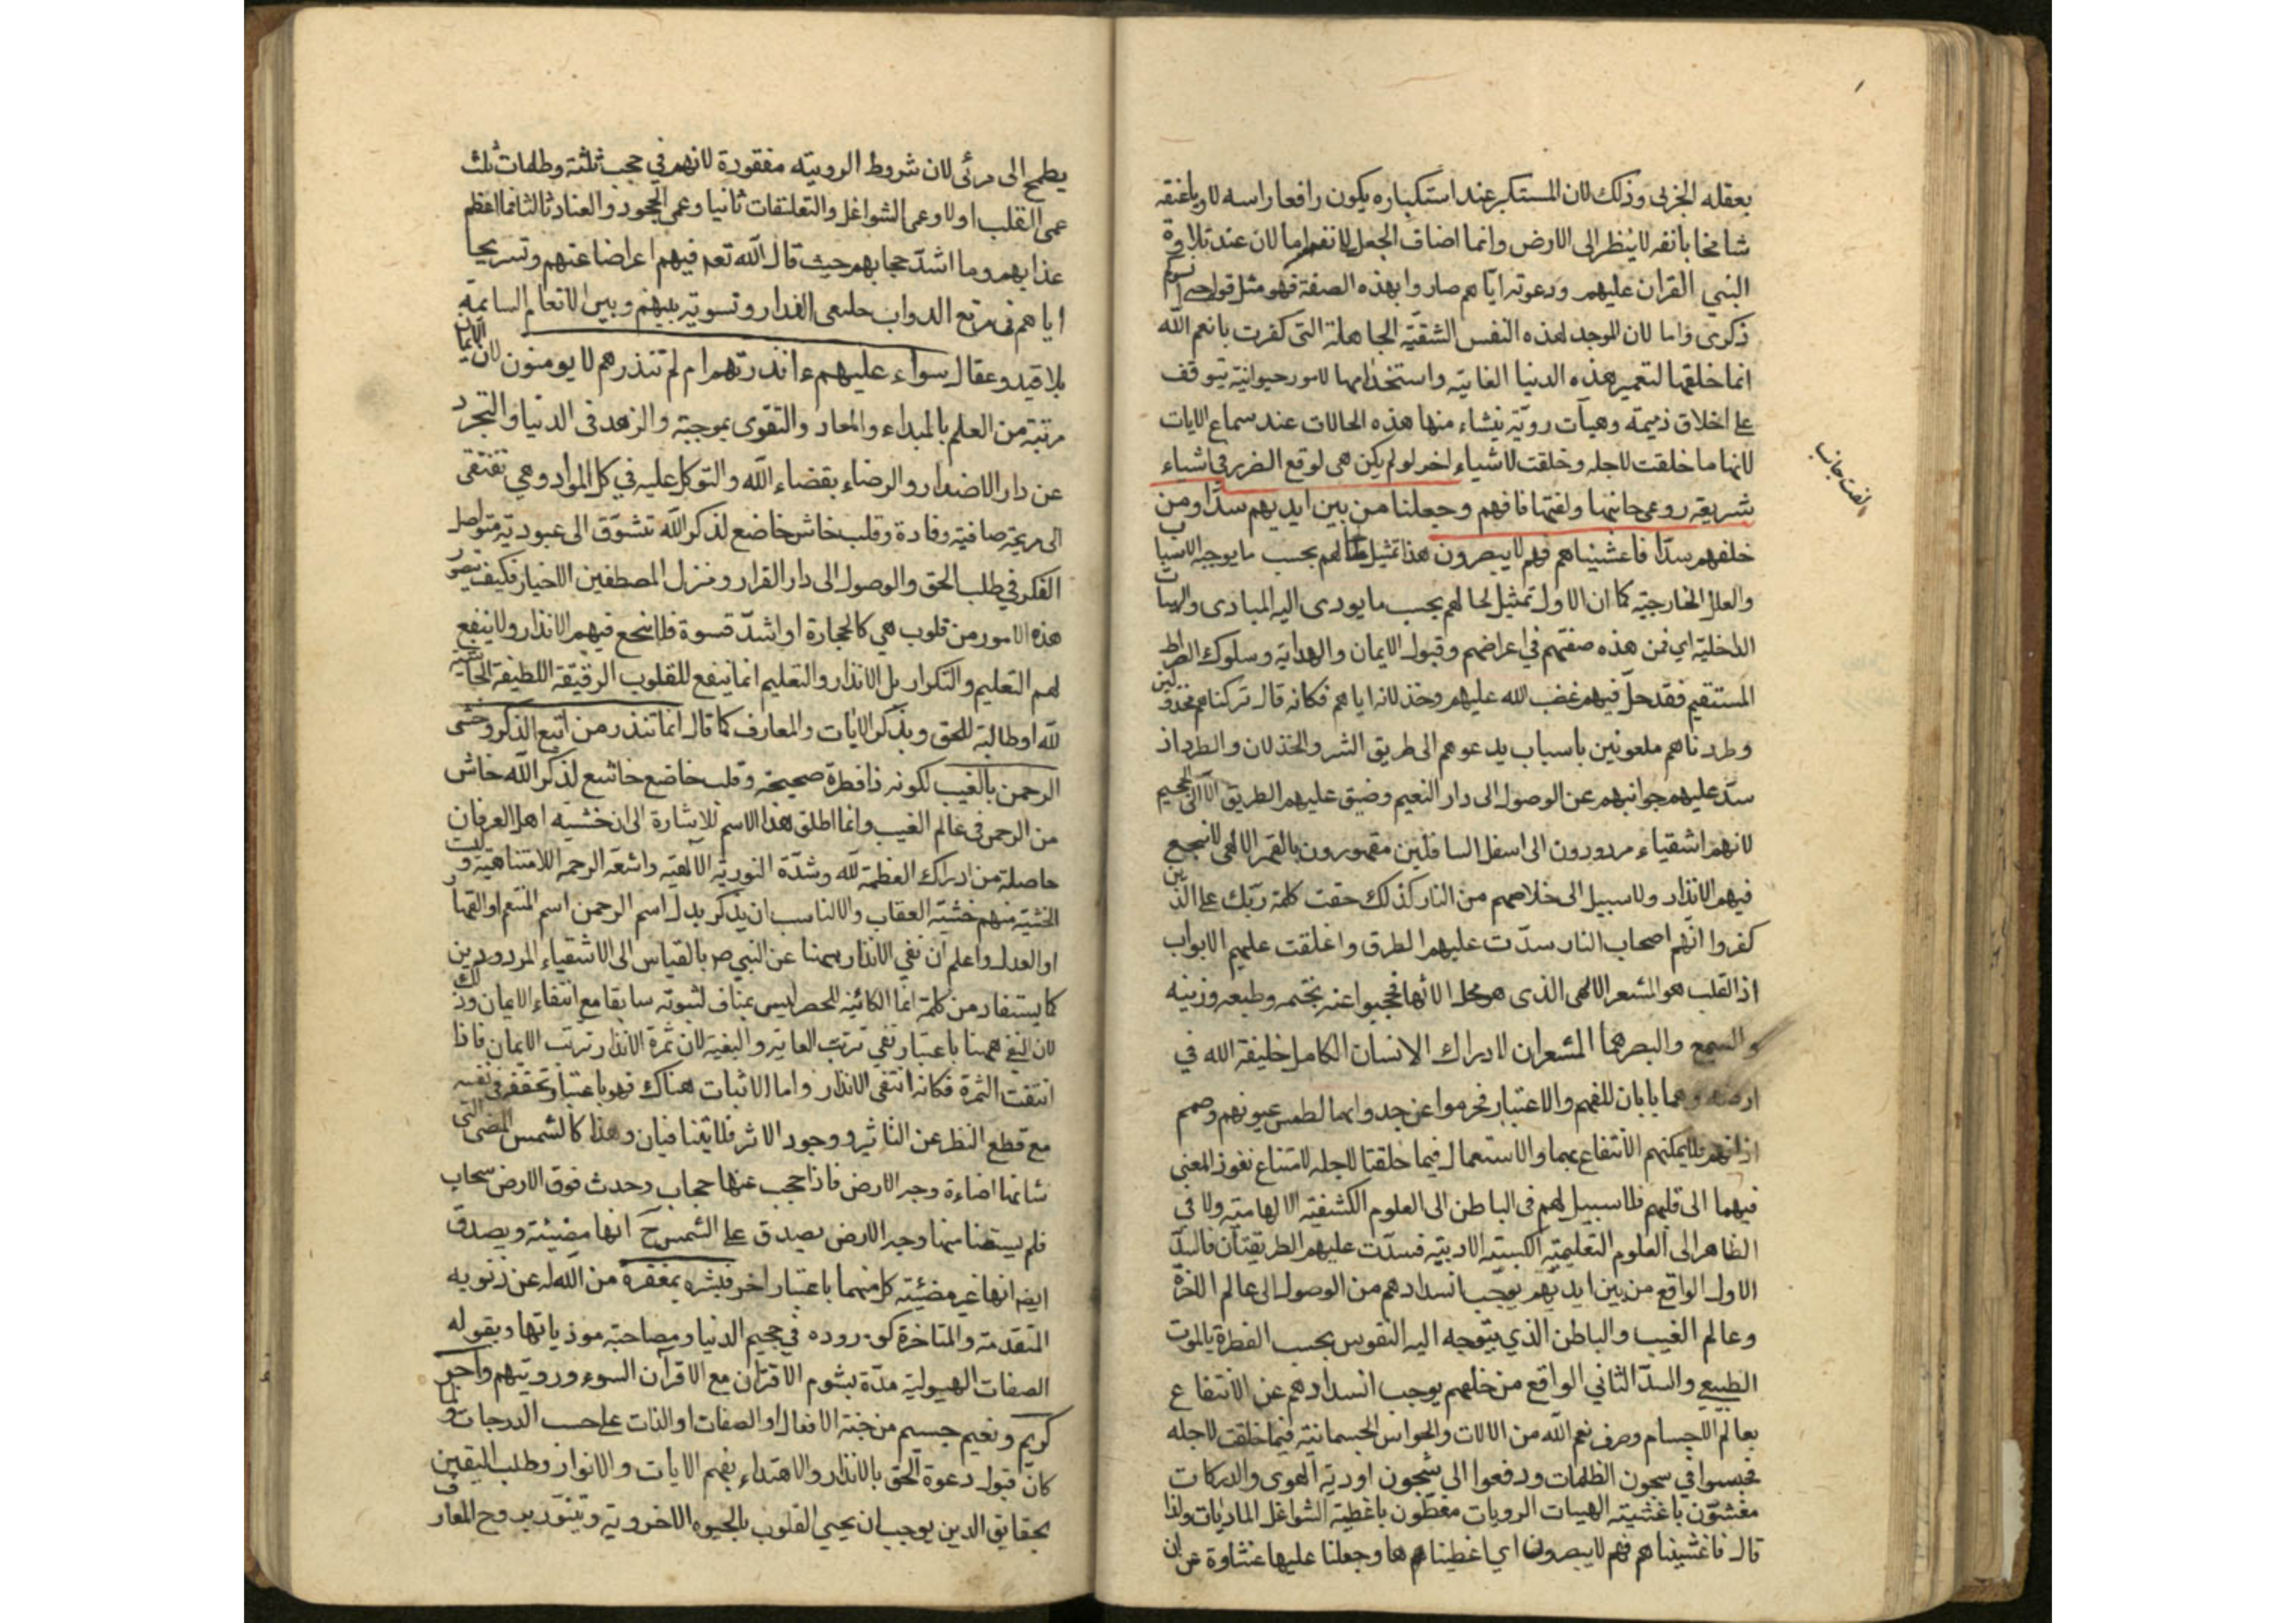 بعقله الجزئى وذلك لان المستكبر عند استكباره يكون رافعا راسه لاويا عنقه
شامخا بانفه لا ينظر الى الارض وانما اضاف الجعل لانفه اما لان عند تلاوة
النبي القران عليهم ودعوته اياهم صاروا بهذه الصفة فهو مثل قوله حتى انسوكم
ذكرى واما لان الموجد لهذه النفس الشقيّة الجاهلة التى كفرت بانعم الله
انما خلقها لتعمير هذه الدنيا الفانية واستخدامها لامور حيوانية يتوقف
على اخلاق ذميمة وهيآت رديّة ينشاء منها هذه الحالات عند سماع الايات
لانها ما خلقت لاجله وخلقت لاشياء اخر لو لم يكن هى لوقع الضرر فى اشياء
شريفة روعى جانبها ولفتها فافهم وجعلنا من بين ايديهم سدّا ومن
خلفهم سدّا فاغشيناهم فهم لا يبصرون هذا تمثيل لحالهم بحسب ما يوجبه الاسباب
والعلل الخارجية كما ان الاول تمثيل لحالهم بحسب ما يودى اليه المبادى والهيات
الداخلية اي فمن هذه صفتهم في اعراضهم وقبول الايمان والهداية وسلوك الصراط
المستقيم فقد حلّ فيهم غضب الله عليهم وخذلانه اياهم فكانه قال تركناهم مخذولين
وطردناهم ملعونين باسباب يدعوهم الى طريق الشر والخذلان والطرد اذ
سدّ عليهم جوانبهم عن الوصول الى دار النعيم وضيق عليهم الطريق الا الى الجحيم
لانهم اشقياء مردودون الى اسفل السافلين مقهورون بالقهر الالهى لا ينجع
فيهم الانذار ولا سبيل الى خلاصهم من النار كذلك حقت كلمة ربّك على الذين
كفروا انّهم اصحاب النار سدّت عليهم الطرق واغلقت عليهم الابواب
اذ القلب هو المشعر الالهى الذى هو محل الالهام فحجبوا عنه بختمه وطبعه وزينه
والسمع والبصر هما المشعران لادراك الانسان الكامل خليفة الله في
ارضه وهما بابان للفهم والاعتبار فحرموا عن جدواهما لطمس عيونهم وصمم
اذانهم فلا يمكنهم الانتفاع بهما والاستعمال فيما خلقتا لاجله لامتناع نفوذ المعنى
فيهما الى قلبهم فلا سبيل لهم فى الباطن الى العلوم الكشفية الالهامية ولا في
الظاهر الى العلوم التعليمية الكسبية الادبية فسدّت عليهم الطريقتان فالسدّ
الاول الواقع من بين ايديهم يوجب انسدادهم من الوصول الى عالم الاخرة
وعالم الغيب والباطن الذي يتوجه اليه النفوس بحسب الفطرة بالموت
الطبيعي والسدّ الثاني الواقع من خلفهم يوجب انسدادهم عن الانتفاع
بعالم الاجسام وصرف نعم الله من الالات والحواس الجسمانية فيما خلقت لاجله
فحبسوا في سجون الظلمات ودفعوا الى شجون اودية الهوى والدركات
مغشوّن باغشية الهيات الرديات مغطّون باغطية الشواغل الماديات ولذا
قال فاغشيناهم فهم لا يبصرون اي اغطيناهم ها وجعلنا عليها غشاوة عن ان
لفت جانب
يطمح الى مرئى لان شروط الروية مفقودة لانهم في حجب ثلثة وظلمات ثلث
عمى القلب اولا وعمى الشواغل والتعلقات ثانيا وعمى الجحود والعناد ثالثا فما اعظم
عذابهم وما اشدّ حجابهم حيث قال الله تعم فيهم اعراضا عنهم وتسريحا
اياهم فى مرتع الدواب خليعى العذار وتسوية بينهم وبين الانعام السائمة
بلا قيد وعقال سواء عليهم ءانذرتهم ام لم تنذرهم لا يومنون لان الايمان
مرتبة من العلم بالمبداء والمعاد والتقوى بموجبه والزهد فى الدنيا والتجرد
عن دار الاضداد والرضاء بقضاء الله والتوكل عليه في كل المواد وهي تقتقى
الى قريحة صافية وقادة وقلب خاش خاضع لذكر الله تشوّق الى عبودية متواصل
الفكر في طلب الحق والوصول الى دار القرار ومنزل المصطفين الاخيار فكيف يتصور
هذه الامور من قلوب هي كالحجارة او اشدّ قسوة فلا ينجع فيهم الانذار ولا ينفع
لهم التعليم والتكرار بل الانذار والتعليم انما ينفع للقلوب الرقيقة اللطيفة الخاشية
لله او طالبة للحق وبذكر الايات والمعارف كما قال انما تنذر من اتبع الذكر وخشى
الرحمن بالغيب لكونه ذا فطرة صحيحة وقلب خاضع خاشع لذكر الله خاش
من الرحمن فى عالم الغيب وانما اطلق هذا الاسم للاشارة الى ان خشية اهل العرفان
حاصلة من ادراك العظمة لله وشدّة النورية الالهية واشعة الرحمة اللامتناهية وليست
الخشية منهم خشية العقاب والا لناسب ان يذكر بدل اسم الرحمن اسم المنتقم او القهار
او العدل واعلم ان نفي الانذار ههنا عن النبي ص بالقياس الى الاشقياء المردودين
كما يستفاد من كلمة انما الكائنة للحصر ليس بمناف لثبوته سابقا مع انتفاء الايمان وذلك
لان النفي ههنا باعتبار نفي ترتب الغاية والبغية لان ثمرة الانذار ترتب الايمان فاذا
انتفت الثمرة فكانه انتفى الانذار واما الاثبات هناك فهو باعتبار تحققه في نفسه
مع قطع النظر عن التاثير ووجود الاثر فلا يتنافيان وهذا كالشمس المضى التى
شانها اضاءة وجه الارض فاذا حجب عنها حجاب وحدث فوق الارض سحاب
فلم يستضا منها وجه الارض يصدق على الشمس ح انها مضيئة ويصدق
ايضا انها غير مضيئة كل منهما باعتبار اخر فبشره بمغفرة من الله له عن ذنوبه
المتقدمة والمتاخرة كوروده في جحيم الدنيا ومصاحبة موذياتها وبقوله
الصفات الهيولية مدّة بشوم الاقتران مع الاقران السوء ورويتهم واجر
كريم ونعيم جسيم من جنة الافعال او الصفات او الذات على حسب الدرجات ولما
كان قبول دعوة الحق بالانذار والاهتداء بفهم الايات والانوار وطلب اليقين
بحقايق الدين يوجب ان يحيى القلوب بالحيوه الاخروية ويتنور بروح المعارف